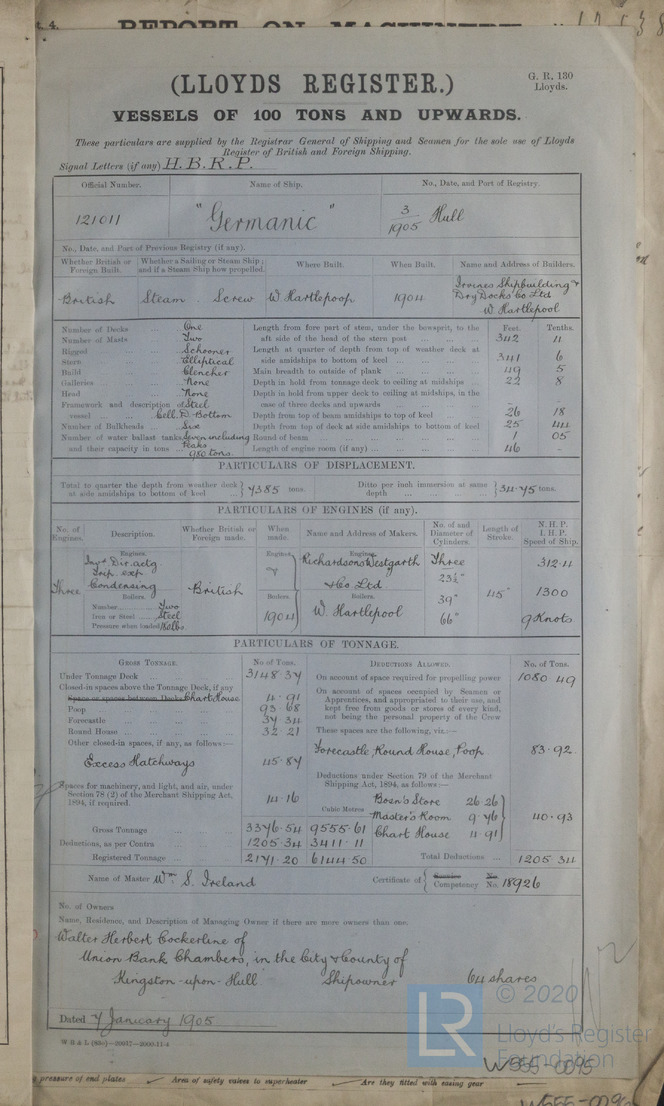 t. 4.
REPORT ON MACHINERY
(LLOYDS REGISTER.)
G. R. 130
Lloyds.
VESSELS OF 100 TONS AND UPWARDS.
These particulars are supplied by the Registrar General of Shipping and Seamen for the sole use of Lloyds
Register of British and Foreign Shipping.
Signal Letters (if any) H. B. R. P.
Official Number. Name of Ship. No., Date, and Port of Registry.
121011 "Germanic" 3/1905 Hull
No., Date, and Port of Previous Registry (if any).
Whether British or Foreign Built. Whether a Sailing or Steam Ship; and if a Steam Ship how propelled. Where Built. When Built. Name and Address of Builders.
British Steam Screw W Hartlepool 1904 Irvines Shipbuilding & Dry Docks Co Ltd W. Hartlepool
Feet. Tenths.
Number of Decks ... One Length from fore part of stem, under the bowsprit, to the
Number of Masts ... Two aft side of the head of the stern post ... 342 4
Rigged ... Schooner Length at quarter of depth from top of weather deck at
Stern ... Elliptical side amidships to bottom of keel ... 341 6
Build ... Clencher Main breadth to outside of plank ... 49 5
Galleries ... None Depth in hold from tonnage deck to ceiling at midships ... 22 8
Head ... None Depth in hold from upper deck to ceiling at midships, in the
Framework and description of Steel case of three decks and upwards ... -
vessel ... Cell. D. Bottom Depth from top of beam amidships to top of keel ... 26 18
Number of Bulkheads ... Six Depth from top of deck at side amidships to bottom of keel 25 44
Number of water ballast tanks Seven including Peaks Round of beam ... 1 05
and their capacity in tons ... 980 tons. Length of engine room (if any) ... 46 -
PARTICULARS OF DISPLACEMENT.
Total to quarter the depth from weather deck at side amidships to bottom of keel ... 7385 tons. Ditto per inch immersion at same depth ... 34.75 tons.
PARTICULARS OF ENGINES (if any).
No. of Engines. Description. Whether British or Foreign made. When made. Name and Address of Makers. No. of and Diameter of Cylinders. Length of Stroke. N. H. P. I. H. P. Speed of Ship.
Engines. Engines. Engines.
Inv. Dir. actg Richardsons Westgarth Three 312.4
Trip. exp & Co Ltd 23½"
Three Condensing British 39" 45" 1300
Boilers. Boilers. Boilers.
Number ... Two 1904 W. Hartlepool 66" 9 Knots
Iron or Steel ... Steel
Pressure when loaded 180 lbs
PARTICULARS OF TONNAGE.
GROSS TONNAGE. No of Tons. DEDUCTIONS ALLOWED. No. of Tons.
Under Tonnage Deck ... 3148.37 On account of space required for propelling power 1080 49
Closed-in spaces above the Tonnage Deck, if any On account of spaces occupied by Seamen or
Space or spaces between Decks Chart House 4.91 Apprentices, and appropriated to their use, and
Poop ... 93 68 kept free from goods or stores of every kind,
Forecastle ... 37 34 not being the personal property of the Crew
Round House ... 32 21 These spaces are the following, viz.:—
Other closed-in spaces, if any, as follows:— Forecastle, Round House, Poop 83.92
Excess Hatchways 45.87
Deductions under Section 79 of the Merchant
Shipping Act, 1894, as follows:—
Spaces for machinery, and light, and air, under
Section 78 (2) of the Merchant Shipping Act,
1894, if required. 14.16
Cubic Metres
Bosn's Store 26 26
Master's Room 9 76
Chart House 4 91
40.93
Gross Tonnage ... 3376.54 9555.61
Deductions, as per Contra ... 1205.34 3411.11
Registered Tonnage ... 2171.20 6144.50 Total Deductions ... 1205 34
Name of Master Wm. S. Ireland Certificate of Service Competency No. No. 18926
No. of Owners
Name, Residence, and Description of Managing Owner if there are more owners than one.
Walter Herbert Cockerline of
Union Bank Chambers, in the City & County of
Kingston-upon-Hull Shipowner 64 shares
Dated 7 January 1905
© 2020
LR
Lloyd's Register
Foundation
W555-0095
pressure of end plates Area of safety valves to superheater Are they fitted with easing gear
W555-0096